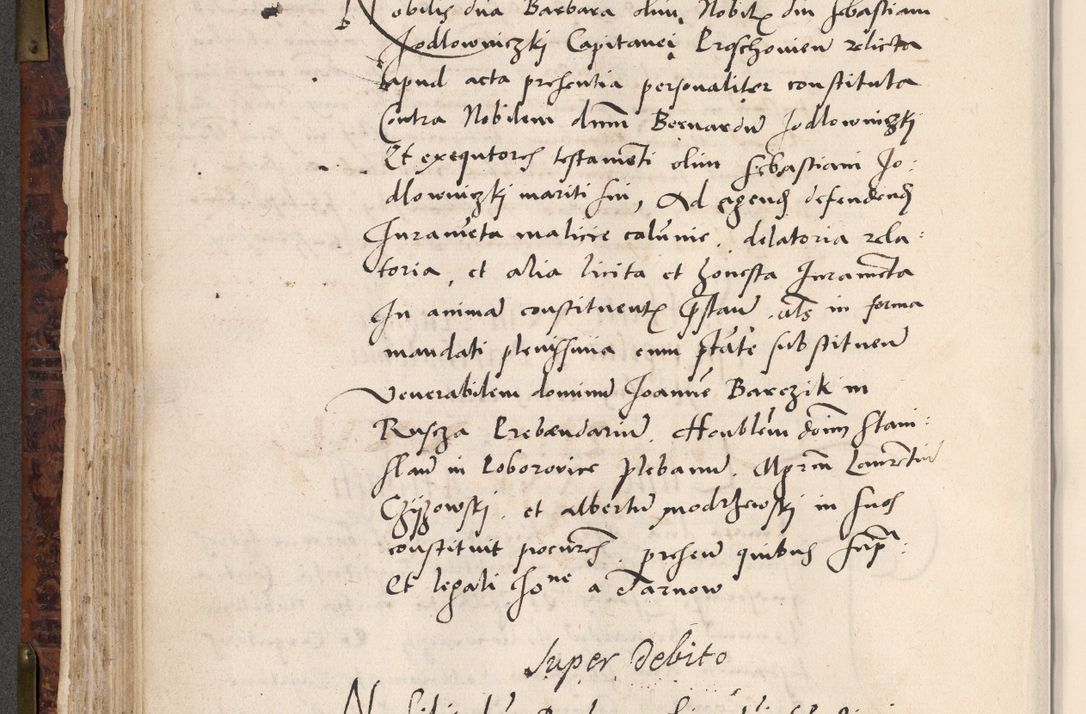 Nobilis dna Barbara olim Nobil dni Sebastiani
Jodlowniczki Capitanei Proschovien relicta
apud acta presentia personaliter constituta
Contra Nobilem dnum Bernardu Jodlowniczki
Et exequtores testameti olim Sebastiani Jo:
dlowniczki mariti sui, Ad agend defendend
Jurameta malicie calunie, delatoria rela:
toria, et alia licita et honesta Juramenta
In anima constituent prestan, als in forma
mandati plenissima cum ptate substituen
Venerabilem dominu Joanne Barczik in
Ruscza Prebendariu. Honblem donum Stani:
slau in Loborovice plebanu. Mgrm Laurentiu
Czyzowski. et albertu modrzewski in suos
constituit procures. presen quibus supr:
Et legali Jone a Tarnow
Super Debito